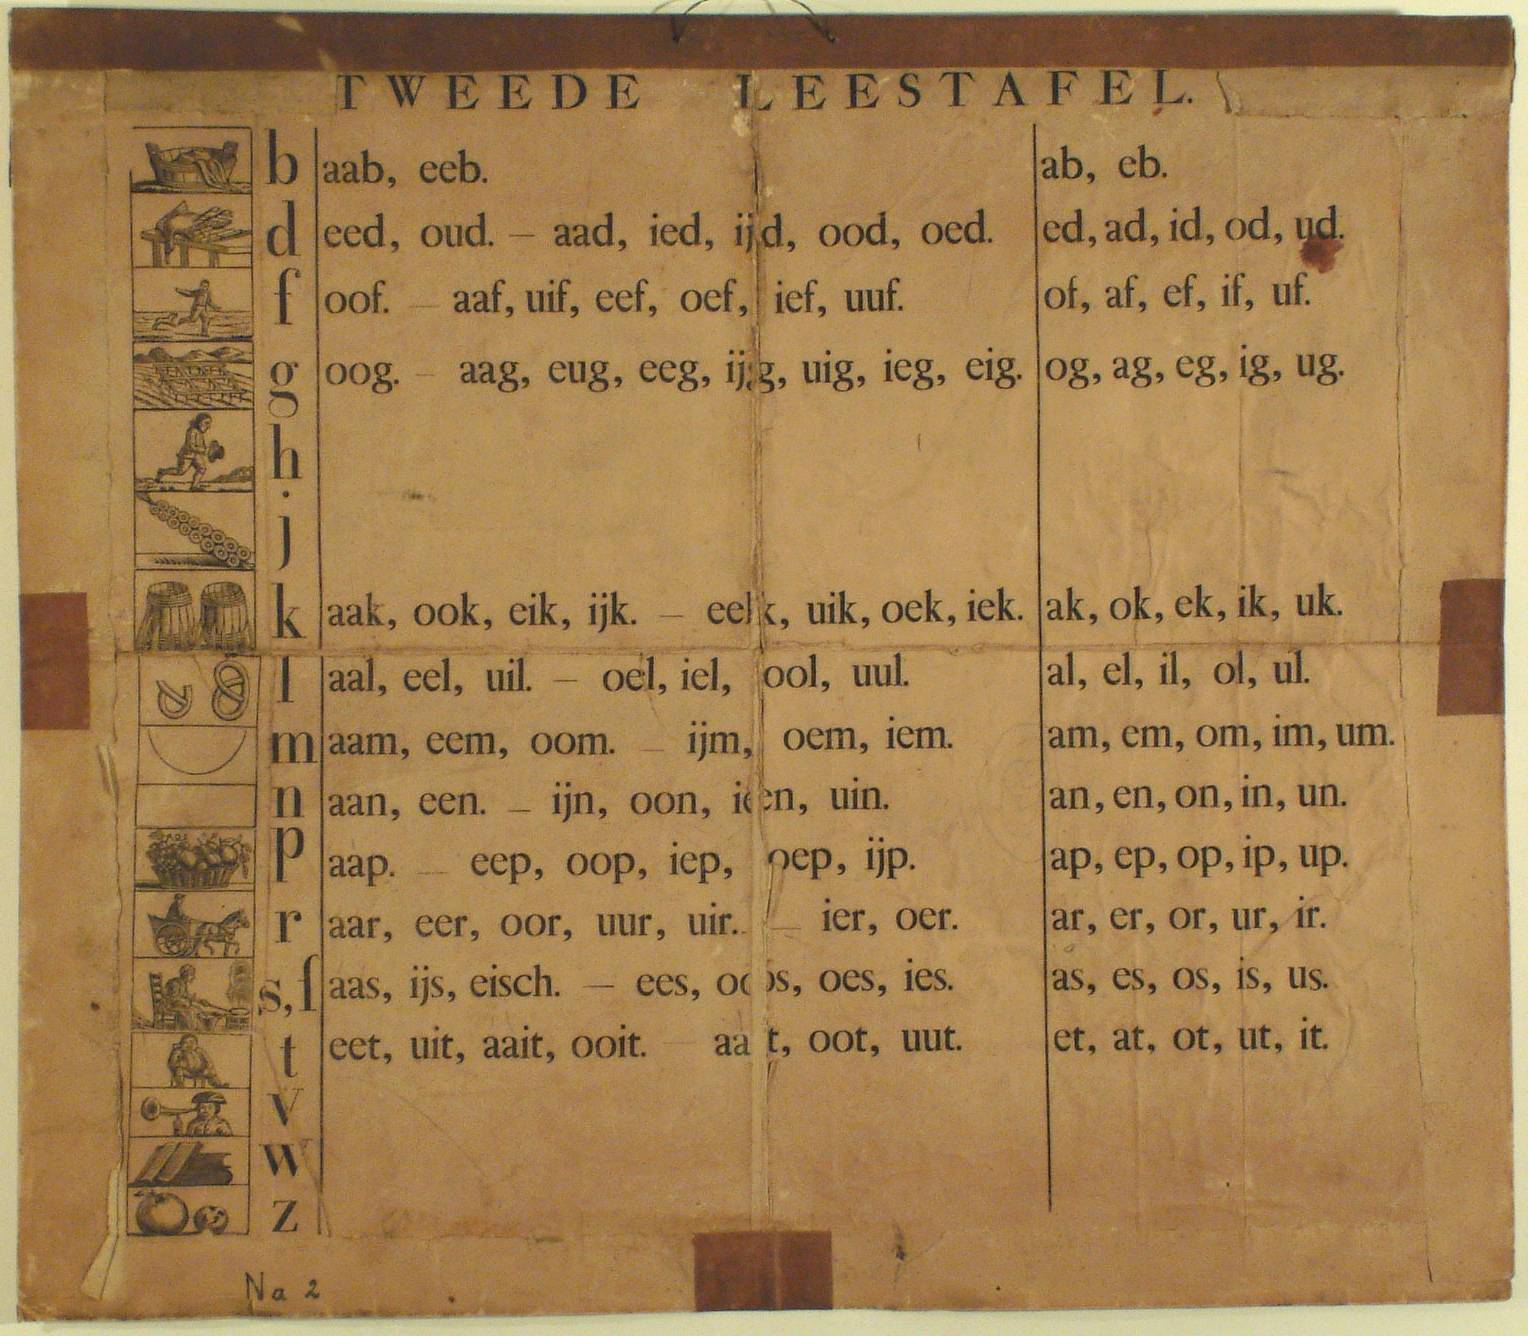 TWEEDE LEESTAFEL.
b aab, eeb. ab, eb.
d eed, oud. — aad, ied, ijd, ood, oed. ed, ad, id, od, ud.
f oof. — aaf, uif, eef, oef, ief, uuf. of, af, ef, if, uf.
g oog. — aag, eug, eeg, ijg, uig, ieg, eig. og, ag, eg, ig, ug.
h
j
k aak, ook, eik, ijk. — eek, uik, oek, iek. ak, ok, ek, ik, uk.
l aal, eel, uil. — oel, iel, ool, uul. al, el, il, ol, ul.
m aam, eem, oom. — ijm, oem, iem. am, em, om, im, um.
n aan, een. — ijn, oon, ien, uin. an, en, on, in, un.
p aap. — eep, oop, iep, oep, ijp. ap, ep, op, ip, up.
r aar, eer, oor, uur, uir. — ier, oer. ar, er, or, ur, ir.
s, ſ aas, ijs, eisch. — ees, oos, oes, ies. as, es, os, is, us.
t eet, uit, aait, ooit. — aat, oot, uut. et, at, ot, ut, it.
v
w
z
Na 2